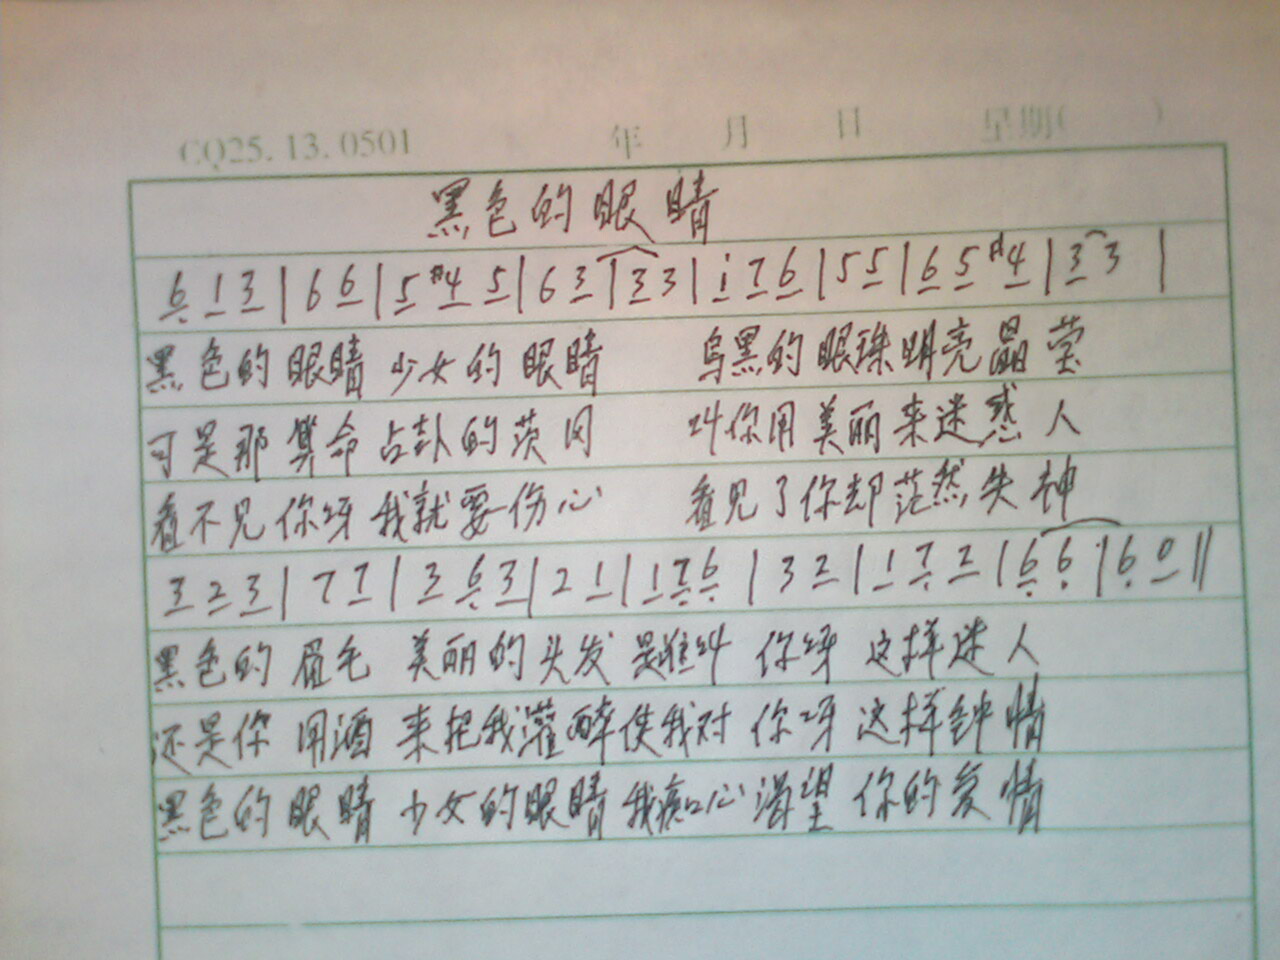 CQ25.13.0501 年 月 日 星期( )
黑色的眼睛
6̣ 1 3 | 6 6 | 5 #4 5 | 6 3 | 3 3 | i 7 6 | 5 5 | 6 5 #4 | 3 3 |
黑色的眼睛 少女的眼睛 乌黑的眼珠明亮晶莹
可是那算命占卦的茨冈 叫你用美丽来迷惑人
看不见你呀我就要伤心 看见了你却茫然失神
3 2 3 | 7 7 | 3 6̣ 3 | 2 1 | 1 7̣ 6̣ | 3 2 | 1 7̣ 2 | 6̣ 6̣ | 6̣ 0 ||
黑色的眉毛 美丽的头发 是谁叫 你呀 这样迷人
还是你 用酒 来把我灌醉使我对 你呀 这样钟情
黑色的眼睛 少女的眼睛 我痴心渴望 你的爱情